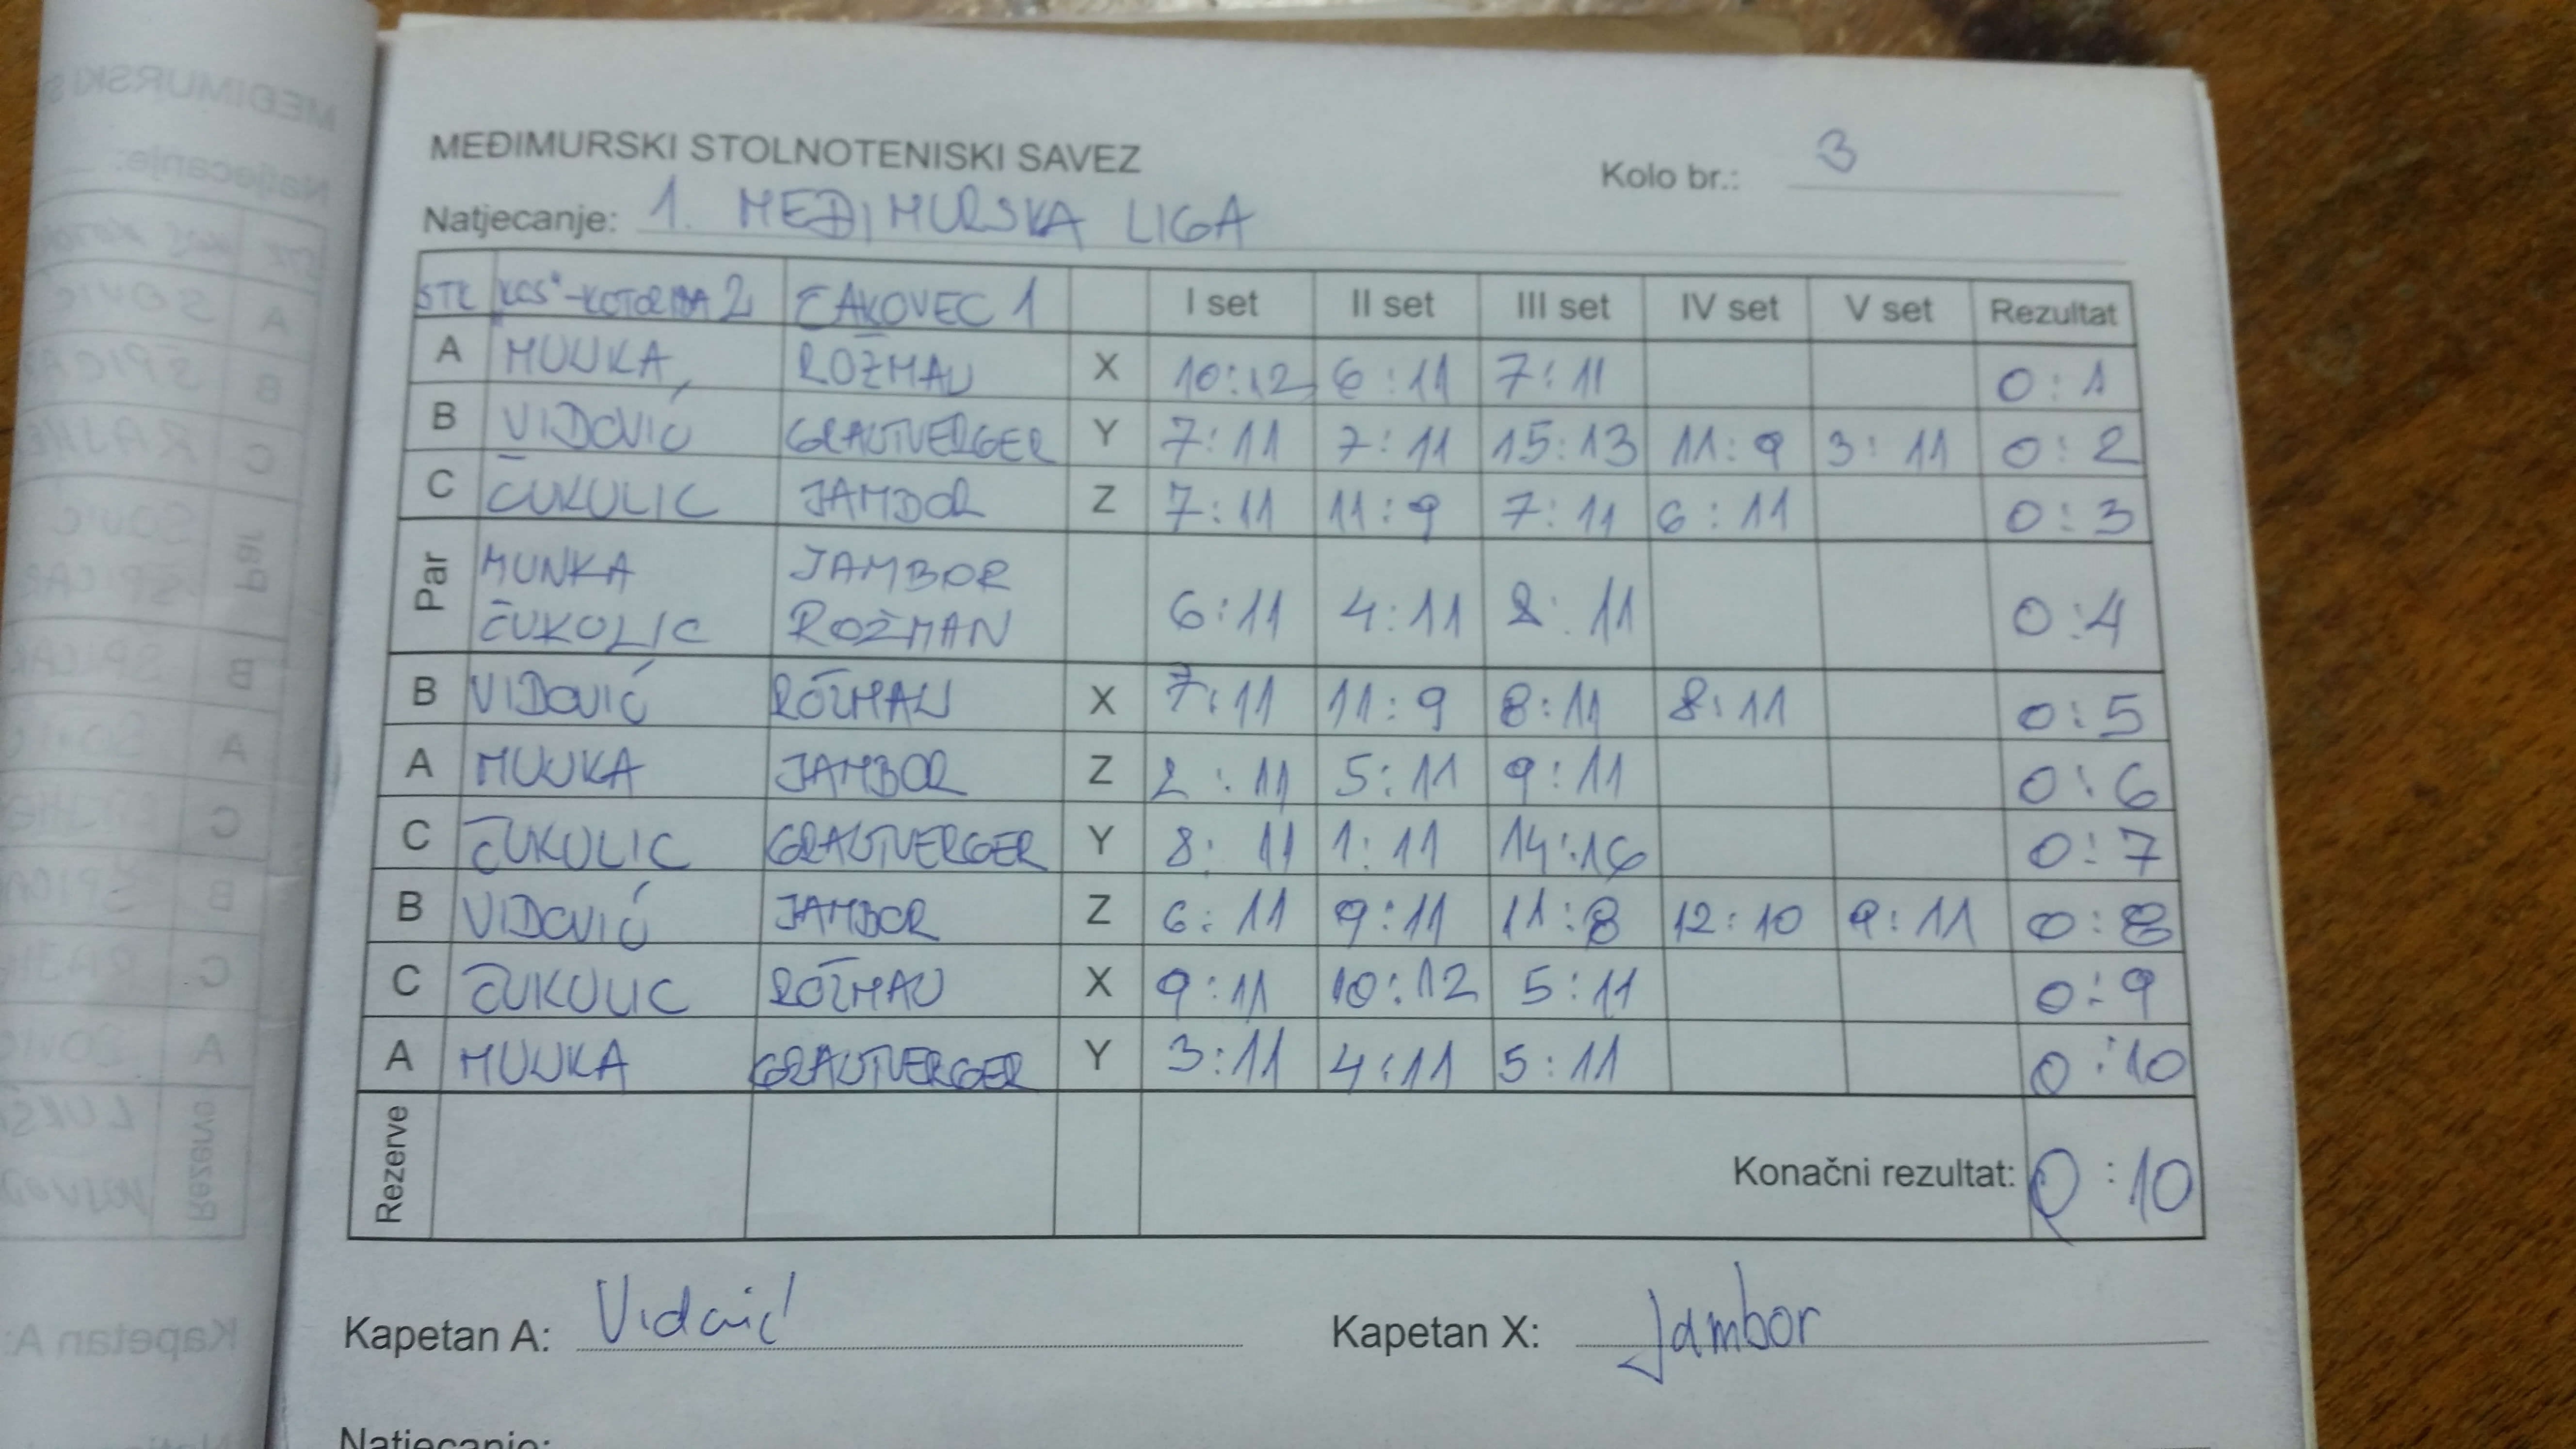 MEĐIMURSKI STOLNOTENISKI SAVEZ
Kolo br.: 3
Natjecanje: 1. MEĐIMURSKA LIGA
STK "KOS"-KOTORIBA 2 ČAKOVEC 1 I set II set III set IV set V set Rezultat
A MUNKA ROŽMAN X 10:12 6:11 7:11 0:1
B VIDOVIĆ GRAUTVERGER Y 7:11 7:11 15:13 11:9 3:11 0:2
C ČUKULIC JAMBOR Z 7:11 11:9 7:11 6:11 0:3
Par MUNKA JAMBOR
ČUKOLIC ROŽMAN 6:11 4:11 8:11 0:4
B VIDOVIĆ ROŽMAN X 7:11 11:9 8:11 8:11 0:5
A MUNKA JAMBOR Z 2:11 5:11 9:11 0:6
C ČUKULIC GRAUTVERGER Y 8:11 1:11 14:16 0:7
B VIDOVIĆ JAMBOR Z 6:11 9:11 11:8 12:10 9:11 0:8
C ČUKULIC ROŽMAN X 9:11 10:12 5:11 0:9
A MUNKA GRAUTVERGER Y 3:11 4:11 5:11 0:10
Rezerve Konačni rezultat: 0:10
Kapetan A: Vidović Kapetan X: Jambor
Natjecanje: